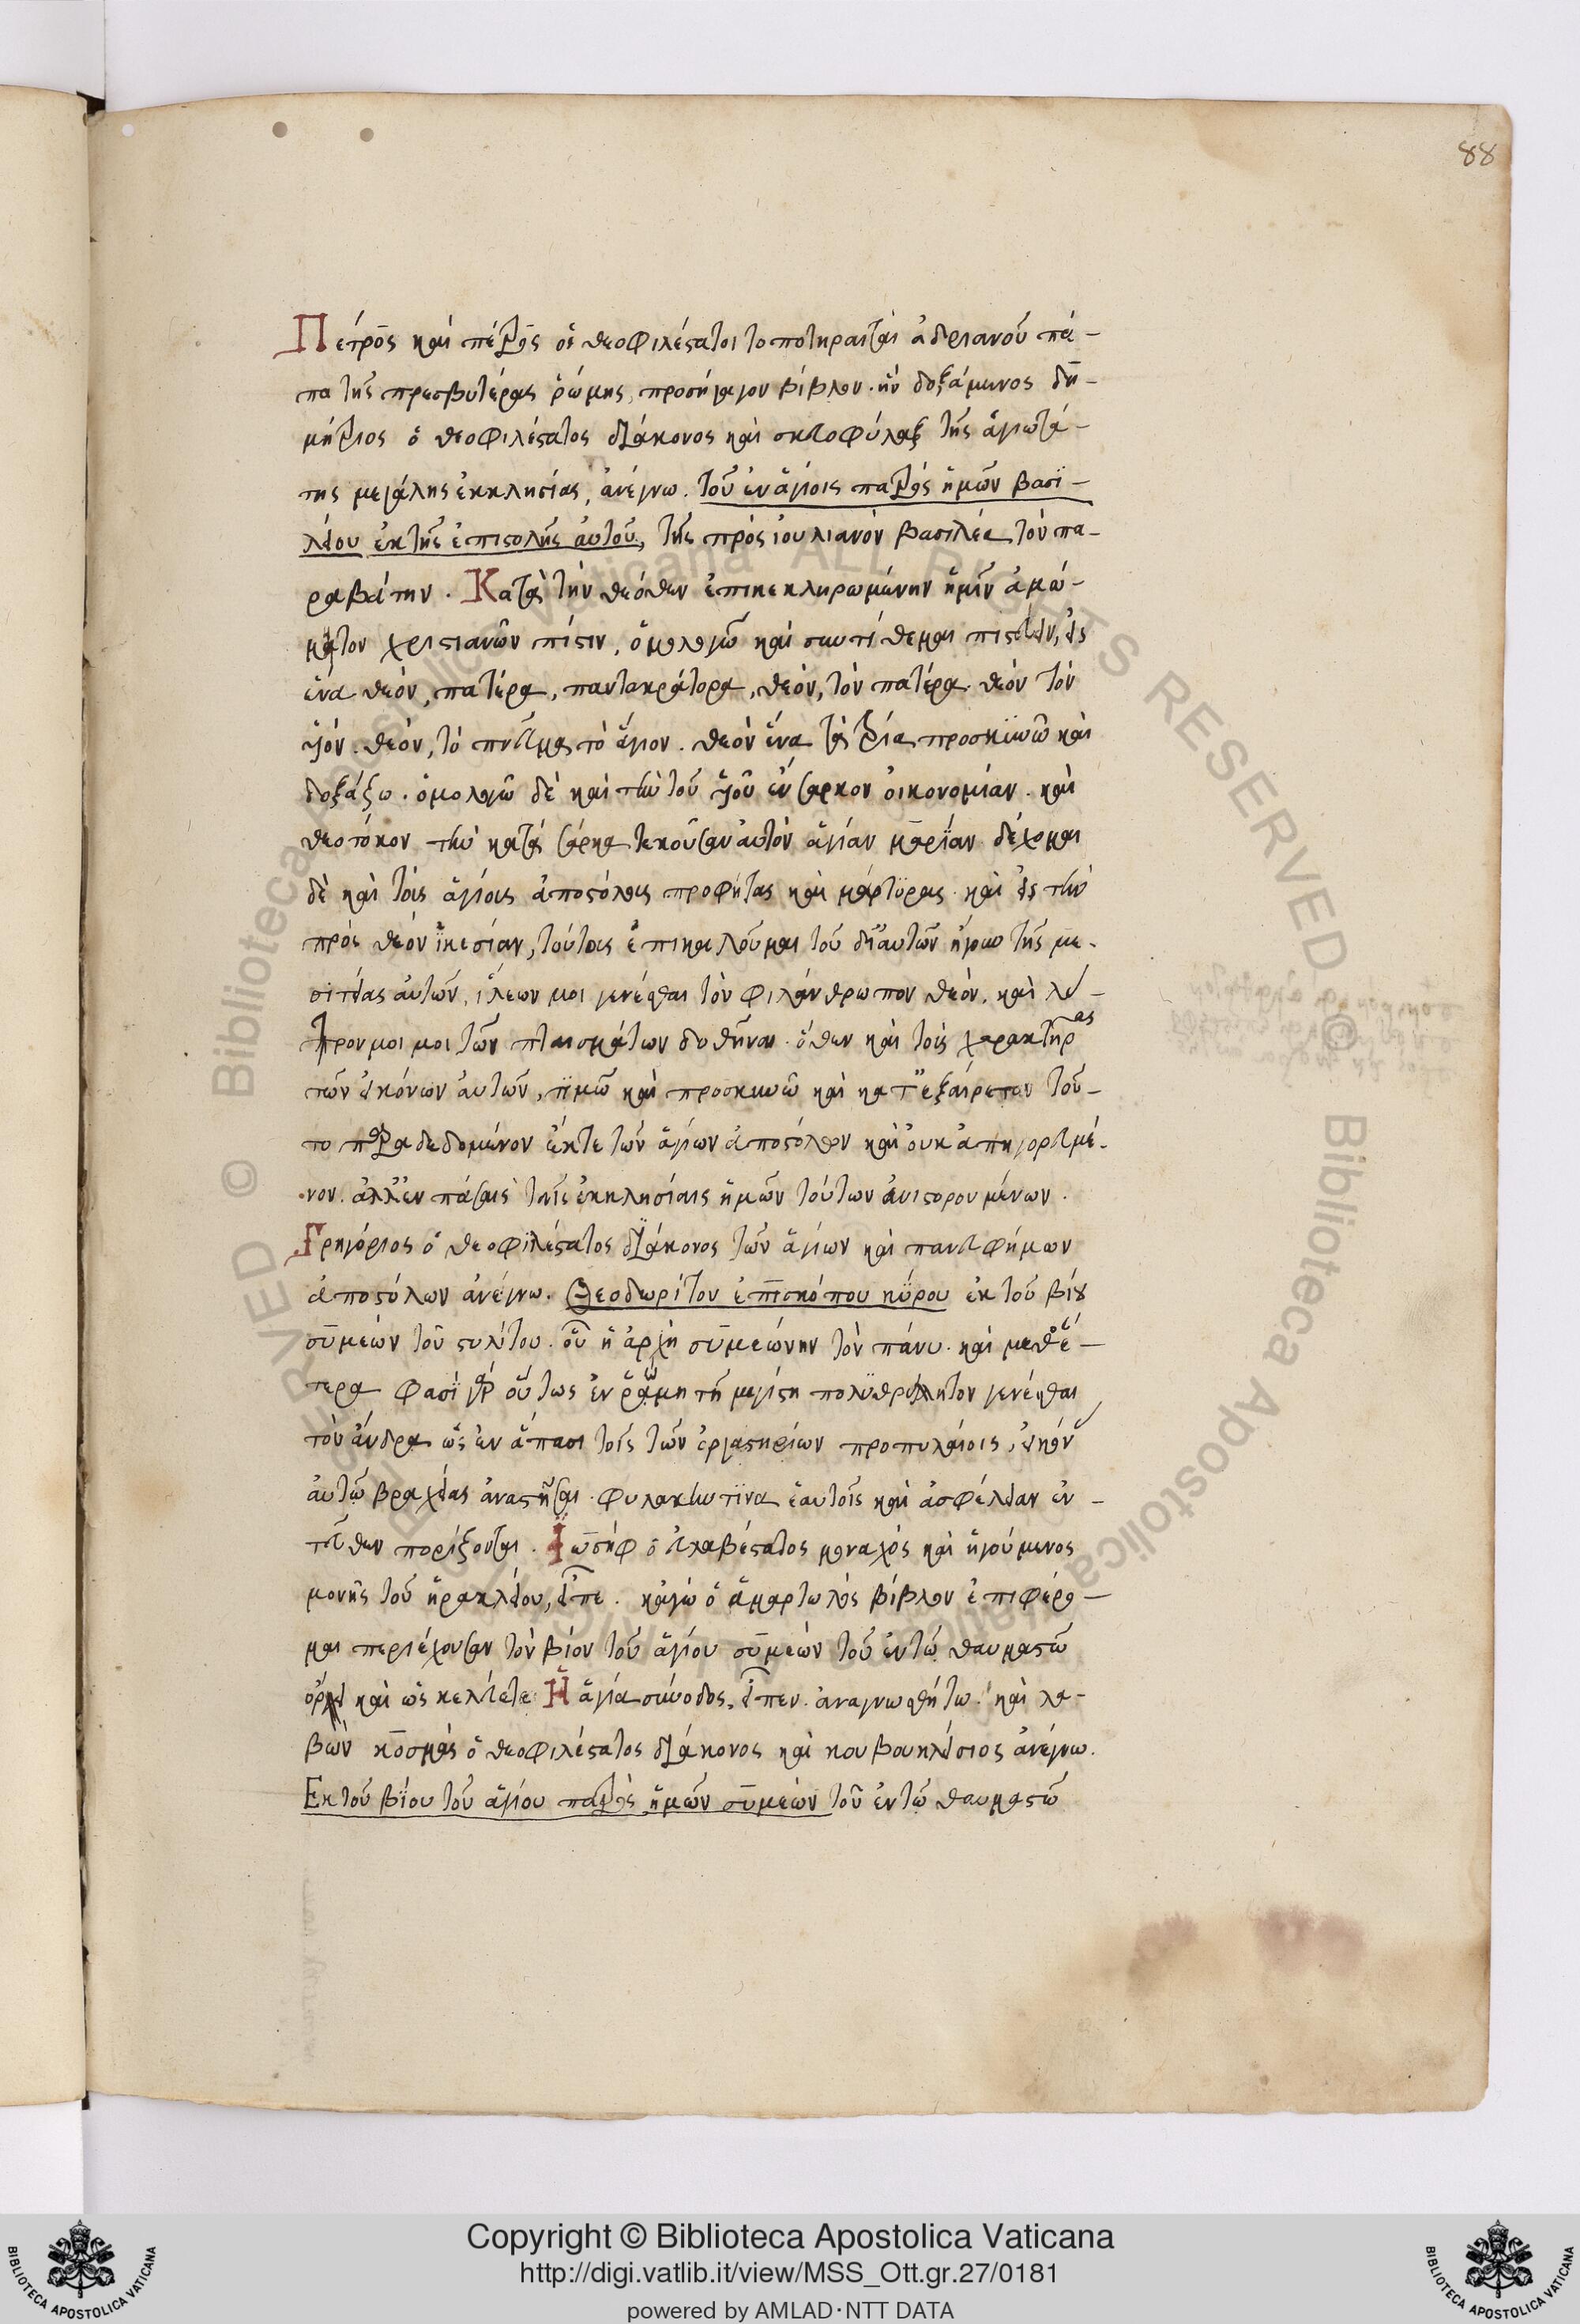 88
Πέτρος καὶ πέτρος οἱ θεοφιλέστατοι τοποτηρηταὶ ἀδριανοῦ πά-
πα τῆς πρεσβυτέρας ῥώμης, προσήγαγον βίβλον. ἣν δεξάμενος δη-
μήτριος ὁ θεοφιλέστατος διάκονος καὶ σκευοφύλαξ τῆς ἁγιωτά-
της μεγάλης ἐκκλησίας, ἀνέγνω. τοῦ ἐν ἁγίοις πατρός ἡμῶν βασι-
λείου ἐκ τῆς ἐπιστολῆς αὐτοῦ, τῆς πρὸς ἰουλιανὸν βασιλέα τὸν πα-
ραβάτην. Κατὰ τὴν θεόθεν ἐπικεκληρωμένην ἡμῖν ἀμώ-
μητον χριστιανῶν πίστιν, ὁμολογῶ καὶ συντίθεμαι πιστεύειν, εἰς
ἕνα θεὸν, πατέρα, παντοκράτορα, θεὸν, τὸν πατέρα. θεὸν τὸν
υἱόν. θεὸν, τὸ πνεῦμα τὸ ἅγιον. θεὸν ἕνα τὰ τρία προσκυνῶ καὶ
δοξάζω. ὁμολογῶ δὲ καὶ τὴν τοῦ υἱοῦ ἔνσαρκον οἰκονομίαν. καὶ
θεοτόκον τὴν κατὰ σάρκα τεκοῦσαν αὐτὸν ἁγίαν μαρίαν. δέχομαι
δὲ καὶ τοὺς ἁγίους ἀποστόλους προφήτας καὶ μάρτυρας. καὶ εἰς τὴν
πρὸς θεὸν ἱκεσίαν, τούτους ἐπικαλοῦμαι τοῦ δι' αὐτῶν ἤγουν τῆς με-
σιτείας αὐτῶν, ἵλεων μοι γενέσθαι τὸν φιλάνθρωπον θεὸν, καὶ λύ-
τρον μοι μοι τῶν πταισμάτων δοθῆναι. ὅθεν καὶ τοὺς χαρακτῆρας
τῶν εἰκόνων αὐτῶν, τιμῶ καὶ προσκυνῶ καὶ κατ' ἐξαίρετον τού-
το παραδεδομένον ἐκ τε τῶν ἁγίων ἀποστόλων καὶ οὐκ ἀπηγορευμέ-
νον. ἀλλ' ἐν πάσαις ταῖς ἐκκλησίαις ἡμῶν τούτων ἀνιστορουμένων.
Γρηγόριος ὁ θεοφιλέστατος διάκονος τῶν ἁγίων καὶ πανευφήμων
ἀποστόλων ἀνέγνω. Θεοδωρίτου ἐπισκόπου κύρου ἐκ τοῦ βίου
συμεὼν τοῦ στυλίτου. οὗ ἡ ἀρχὴ συμεώνην τὸν πάνυ. καὶ μεθ' ἕ-
τερα φασὶ γὰρ οὕτως ἐν ῥώμη τῆ μεγίστη πολυθρύλητον γενέσθαι
τὸν ἄνδρα ὡς ἐν ἅπασι τοῖς τῶν ἐργαστηρίων προπυλαίοις, εἰκόν
αὐτῶ βραχείας ἀναστῆσαι. φυλακὴν τινα ἑαυτοῖς καὶ ἀσφέλειαν ἐν-
τεῦθεν πορίζονται. Ἰωσὴφ ὁ εὐλαβέστατος μοναχὸς καὶ ἡγούμενος
μονῆς τοῦ ἡρακλείου, εἶπε. κἀγὼ ὁ ἁμαρτωλὸς βίβλον ἐπιφέρο-
μαι περιέχουσαν τὸν βίον τοῦ ἁγίου συμεὼν τοῦ ἐν τῶ θαυμαστῶ
ὄρει καὶ ὡς κελεύετε Ἡ ἁγία σύνοδος, εἶπεν. ἀναγνωσθήτω. καὶ λα-
βὼν κοσμὰς ὁ θεοφιλέστατος διάκονος καὶ κουβουκλείσιος ἀνέγνω.
Ἐκ τοῦ βίου τοῦ ἁγίου πατρὸς ἡμῶν συμεὼν τοῦ ἐν τῶ θαυμαστῶ
Copyright © Biblioteca Apostolica Vaticana
http://digi.vatlib.it/view/MSS_Ott.gr.27/0181
powered by AMLAD·NTT DATA